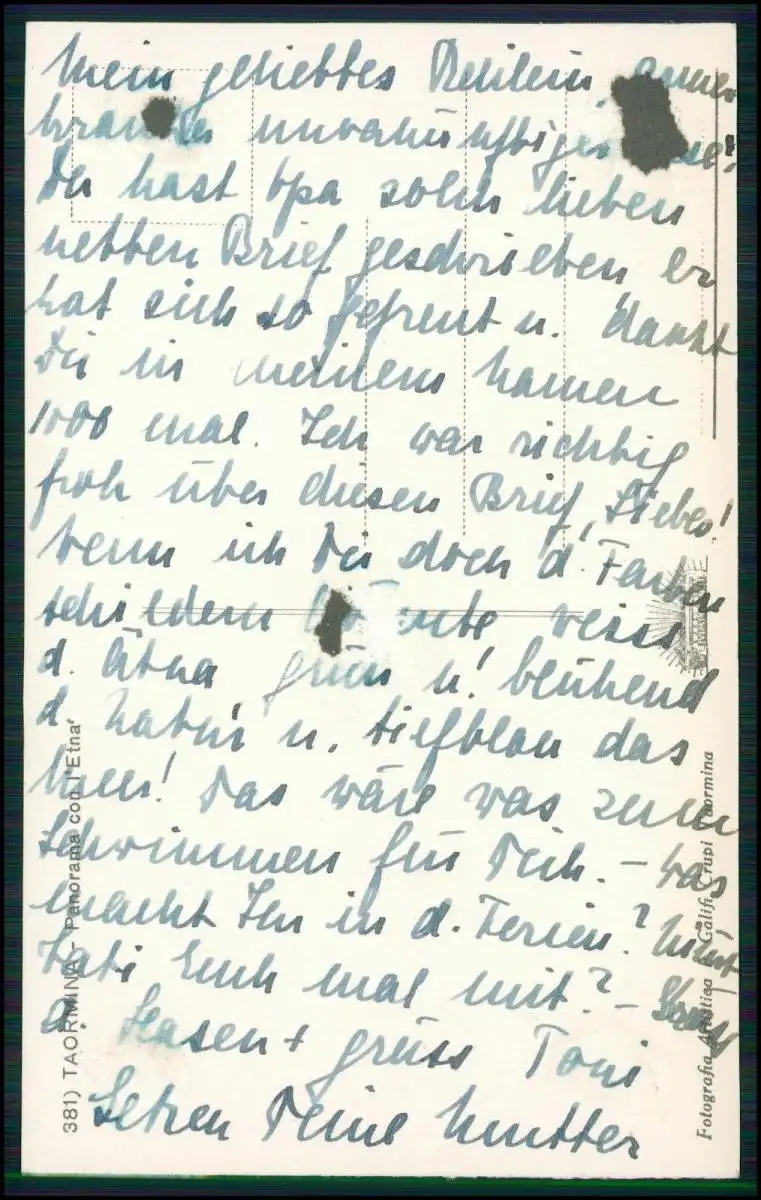 Mein geliebtes Rehlein, armer
kranker unvernünftiger
Du hast Opa solch lieben
netten Brief geschrieben er
hat sich so gefreut u. dankt
Dir in meinem Namen
1000 mal. Ich war richtig
froh über diesen Brief, Liebes!
Wenn ich Dir doch d. Farben
schildern könnte weiss
d. Ätna grün u. blühend
d. Natur u. tiefblau das
Meer! Das wäre was zum
Schwimmen für Dich. – Was
macht Ihr in d. Ferien? Nimmt
Vati Euch mal mit? –
Hasen + grüss Toni
Deine Mutter
381) TAORMINA - Panorama con l'Etna
Fotografia Artistica Galifi Crupi Taormina